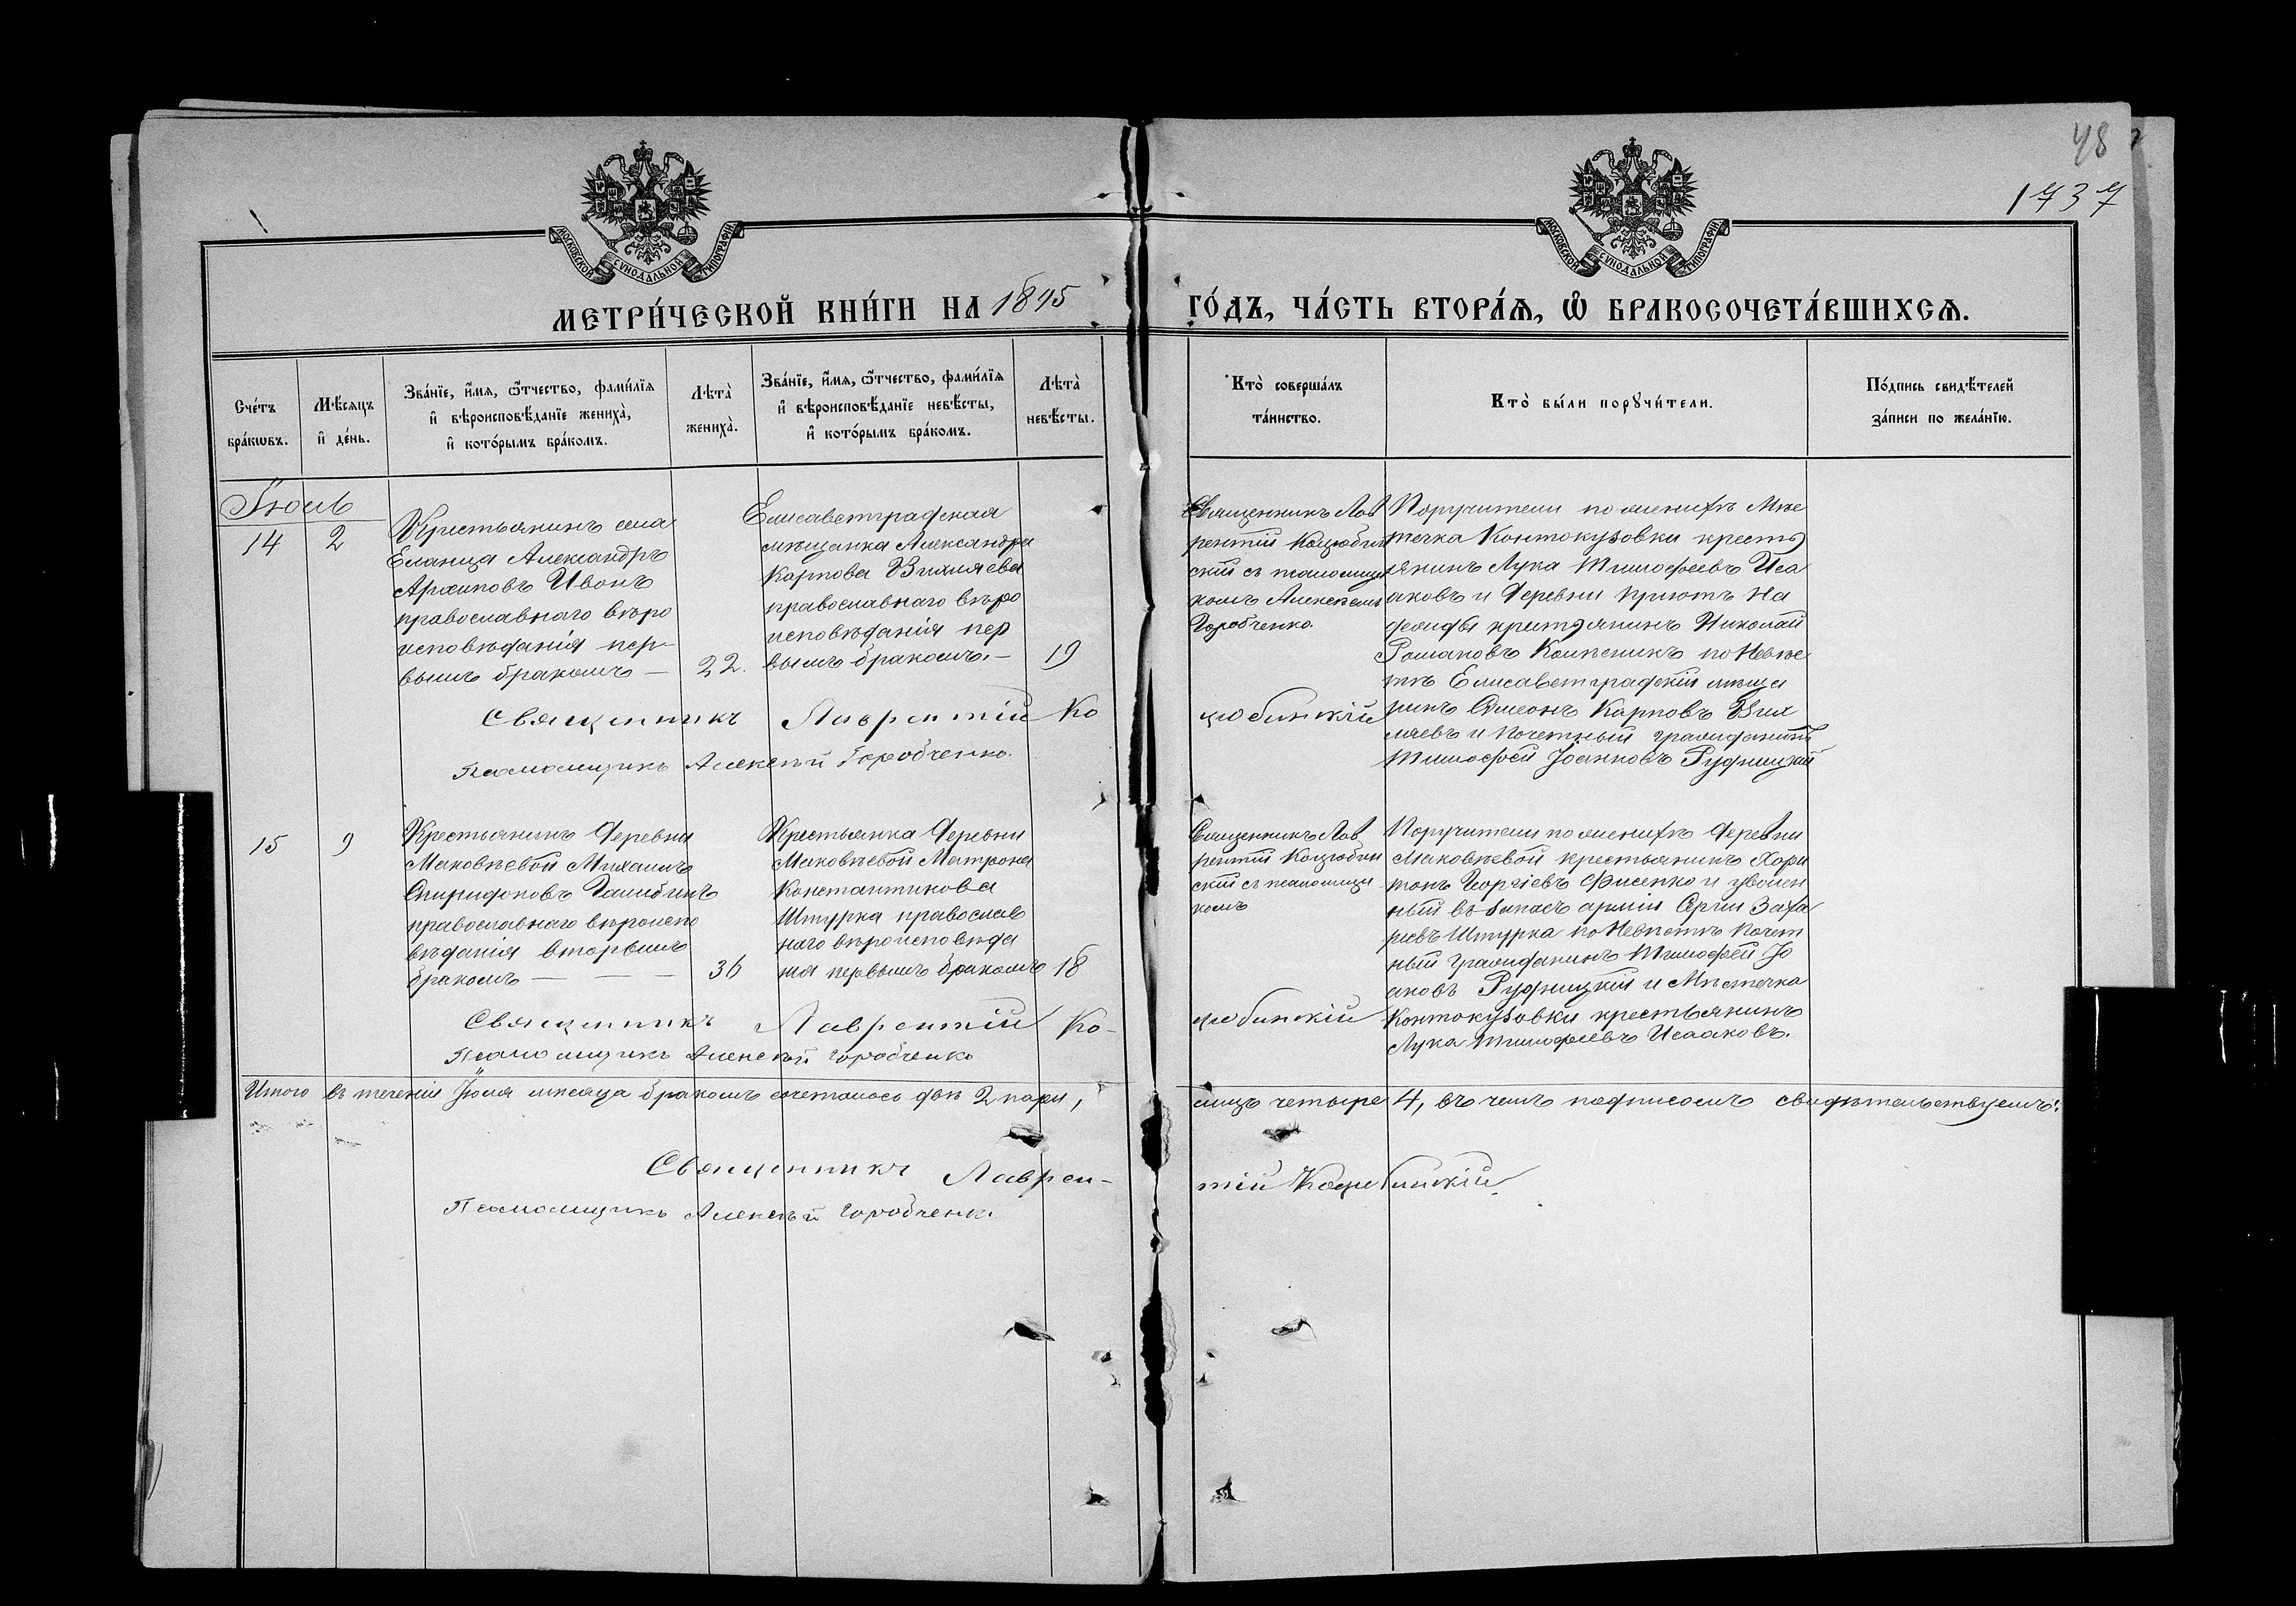 48
1737
МОСКОВСКОЙ СѴНОДАЛЬНОЙ ТИПОГРАФІИ
МОСКОВСКОЙ СѴНОДАЛЬНОЙ ТИПОГРАФІИ
МЕТРИ́ЧЕСКОЙ КНИ́ГИ НА 1895
ГО́ДЪ, ЧА́СТЬ ВТОРА́Ѧ, Ѽ БРАКОСОЧЕТА́ВШИХСѦ.
Сче́тъ бра́кωвъ.
Мѣ́сяцъ и҆ де́нь.
Зва́нїе, и҆́мѧ, ѻ҆́тчество, фами́лїѧ
и҆ вѣроисповѣ́данїе жениха̀,
и҆ кото́рымъ бра́комъ.
Лѣта̀ жениха̀.
Зва́нїе, и҆́мѧ, ѻ҆́тчество, фами́лїѧ
и҆ вѣроисповѣ́данїе невѣ́сты,
и҆ кото́рымъ бра́комъ.
Лѣта̀ невѣ́сты.
Кто̀ соверша́лъ
та́инство.
Кто̀ бы́ли порꙋчи́тели.
По́дпись свидѣ́телей
за́писи по жела́нїю.
Іюль
14
2
Крестьянинъ села
Еланца Александръ
Архиповъ Ивонъ
православнаго вѣро
исповѣданія пер-
вымъ бракомъ —
22.
Елисаветградская
мѣщанка Александра
Карпова Вихляева
православнаго вѣро
исповѣданія пер
вымъ бракомъ. —
19
Священникъ Лав
рентій Коцюбин
скій съ псаломщи
комъ Алексѣемъ
Горобченко.
Поручители по женихѣ Мѣс
течка Контокузовки кресть
янинъ Лука Тимофеевъ Иса
аковъ и Деревни Приютъ На
дежды крестьянинъ Николай
Романовъ Колѣсникъ по Невѣс
тѣ Елисаветградскій мѣща
нинъ Симеонъ Карповъ Вих
ляевъ и Почетный гражданинъ
Тимофей Іоанновъ Рудницкій
Священникъ Лаврентій Ко
цюбинскій
Псаломщикъ Алексѣй Горобченко.
15
9
Крестьянинъ Деревни
Маковѣевой Михаилъ
Спиридоновъ
православнаго вѣроиспо
вѣданія вторымъ
бракомъ — — —
36
Крестьянка Деревни
Маковѣевой Матрона
Константинова
Штурка православ
наго вѣроисповѣда
нія первымъ бракомъ
18
Священникъ Лав
рентій Коцюбин
скій съ псаломщи
комъ
Поручители по женихѣ Деревни
Маковѣевой крестьянинъ Хари
тонъ Георгіевъ Фисенко и уволен
ный въ запасъ арміи Сергій Заха
ріевъ Штурка по Невѣстѣ Почет
ный гражданинъ Тимофей Іо
анновъ Рудницкій и Мѣстечка
Контокузовки крестьянинъ
Лука Тимофеевъ Исааковъ.
Священникъ Лаврентій Ко-
цюбинскій
Псаломщикъ Алексѣй Горобченко
Итого въ теченіи Іюля мѣсяца бракомъ сочеталось двѣ 2 пары,
лицъ четыре 4, въ чемъ подписомъ свидѣтельствуемъ:
Священникъ Лаврен-
тій Коцюбинскій.
Псаломщикъ Алексѣй Горобченко